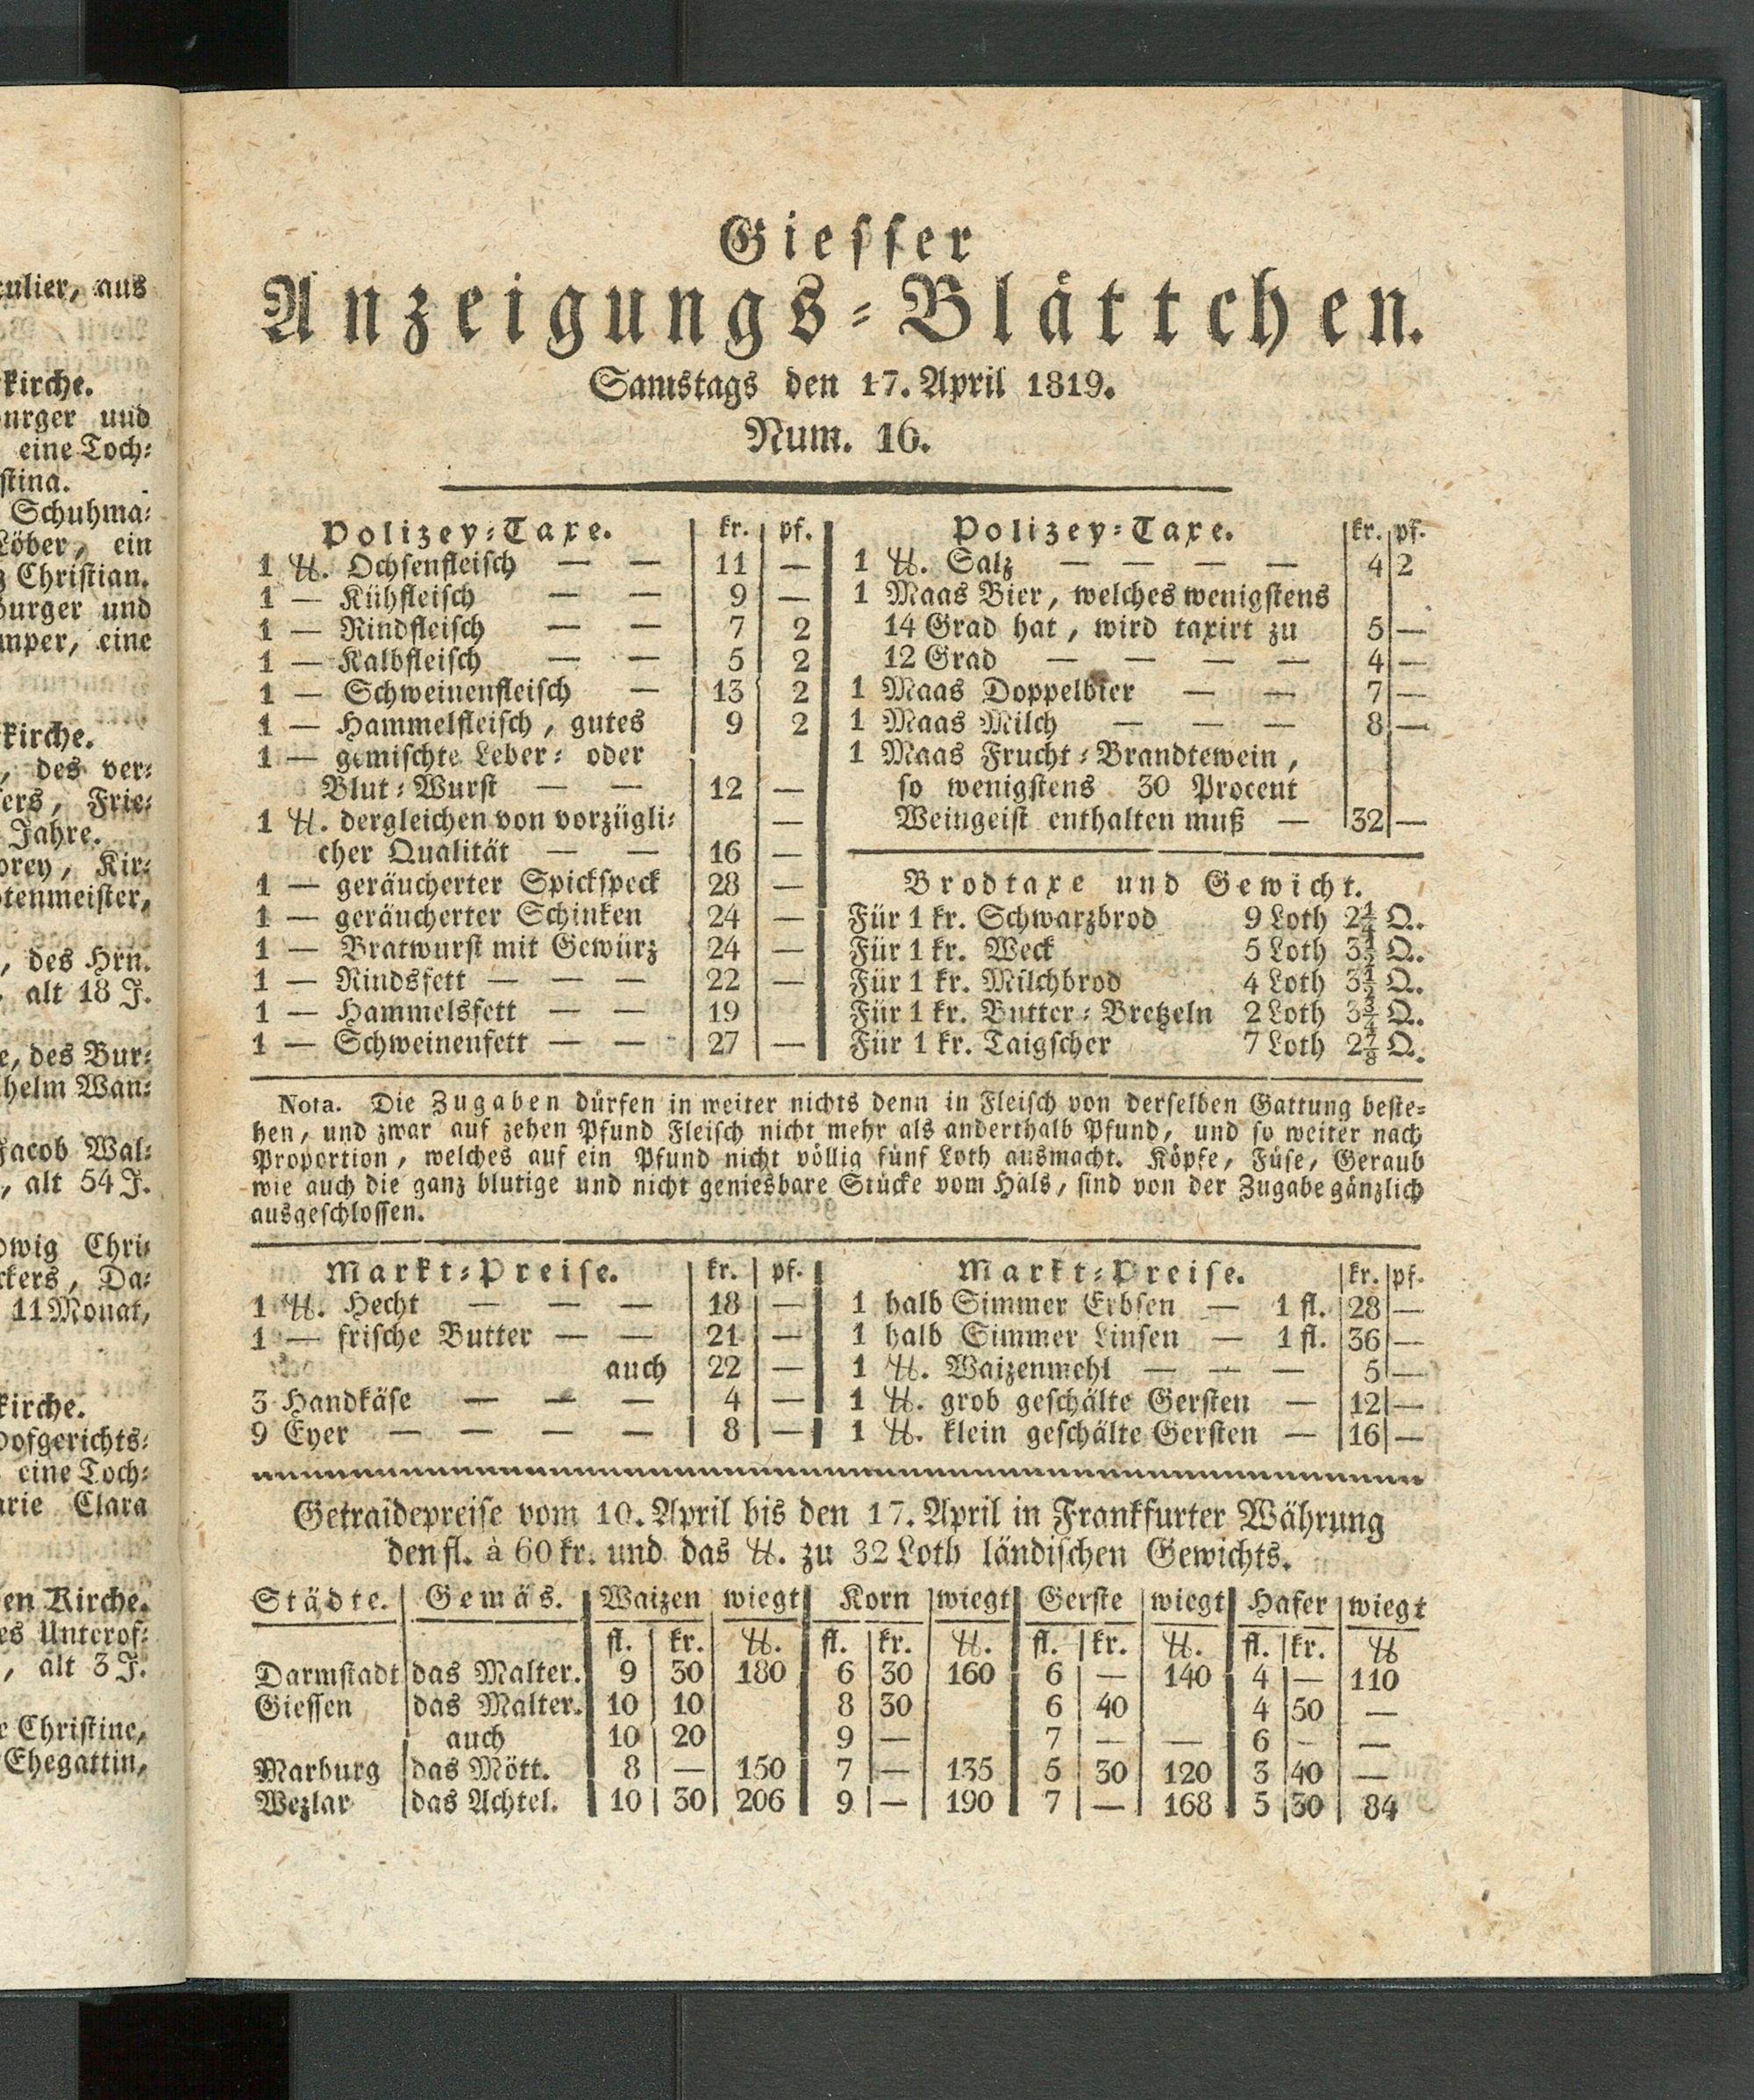 culier, aus
kirche.
urger und
eine Toch⸗
stina.
Schuhma⸗
Löber, ein
Christian.
Burger und
mper, eine
kirche.
, des ver⸗
sers, Frie⸗
Jahre.
orey, Kir⸗
tenmeister,
, des Hrn.
alt 18 J.
e, des Bur⸗
helm Wan⸗
Jacob Wal⸗
, alt 54 J.
dwig Chri⸗
ckers, Da⸗
11 Monat,
kirche.
Hofgerichts⸗
eine Toch⸗
arie Clara
en Kirche.
es Unterof⸗
, alt 3 J.
e Christine,
Ehegattin,
Giesser
Anzeigungs⸗Blättchen.
Samstags den 17. April 1819.
Num. 16.
Polizey⸗Taxe. kr. pf.
1 ℔. Ochsenfleisch — — 11 —
1 — Kühfleisch — — 9 —
1 — Rindfleisch — — 7 2
1 — Kalbfleisch — — 5 2
1 — Schweinenfleisch — 13 2
1 — Hammelfleisch, gutes 9 2
1 — gemischte Leber⸗ oder
Blut⸗Wurst — — 12 —
1 ℔. dergleichen von vorzügli⸗ —
cher Qualität — — 16 —
1 — geräucherter Spickspeck 28 —
1 — geräucherter Schinken 24 —
1 — Bratwurst mit Gewürz 24 —
1 — Rindsfett — — — 22 —
1 — Hammelsfett — — 19
1 — Schweinenfett — — 27 —
Polizey⸗Taxe. kr. pf.
1 ℔. Salz — — — — 4 2
1 Maas Bier, welches wenigstens
14 Grad hat, wird taxirt zu 5 —
12 Grad — — — — 4 —
1 Maas Doppelbier — — 7 —
1 Maas Milch — — — 8 —
1 Maas Frucht⸗Brandtewein,
so wenigstens 30 Procent
Weingeist enthalten muß — 32 —
Brodtaxe und Gewicht.
Für 1 kr. Schwarzbrod 9 Loth 2¼ Q.
Für 1 kr. Weck 5 Loth 3½ Q.
Für 1 kr. Milchbrod 4 Loth 3½ Q.
Für 1 kr. Butter⸗Bretzeln 2 Loth 3¾ Q.
Für 1 kr. Taigscher 7 Loth 2⅞ Q.
Nota. Die Zugaben dürfen in weiter nichts denn in Fleisch von derselben Gattung beste⸗
hen, und zwar auf zehen Pfund Fleisch nicht mehr als anderthalb Pfund, und so weiter nach
Proportion, welches auf ein Pfund nicht völlig fünf Loth ausmacht. Köpfe, Füse, Geraub
wie auch die ganz blutige und nicht geniesbare Stücke vom Hals, sind von der Zugabe gänzlich
ausgeschlossen.
Markt⸗Preise. kr. pf.
1 ℔. Hecht — — — 18 —
1 — frische Butter — — 21 —
auch 22 —
3 Handkäse — — — 4 —
9 Eyer — — — — 8 —
Markt⸗Preise. kr. pf.
1 halb Simmer Erbsen — 1 fl. 28 —
1 halb Simmer Linsen — 1 fl. 36 —
1 ℔. Waizenmehl — — — 5 —
1 ℔. grob geschälte Gersten — 12 —
1 ℔. klein geschälte Gersten — 16 —
Getraidepreise vom 10. April bis den 17. April in Frankfurter Währung
den fl. à 60 kr. und das ℔. zu 32 Loth ländischen Gewichts.
Städte. Gemäs. Waizen wiegt Korn wiegt Gerste wiegt Hafer wiegt
fl. kr. ℔. fl. kr. ℔. fl. kr. ℔. fl. kr. ℔
Darmstadt das Malter. 9 30 180 6 30 160 6 — 140 4 — 110
Giessen das Malter. 10 10 8 30 6 40 4 50 —
auch 10 20 9 — 7 — — 6 — —
Marburg das Mött. 8 — 150 7 — 135 5 30 120 3 40 —
Wezlar das Achtel. 10 30 206 9 — 190 7 — 168 5 30 84